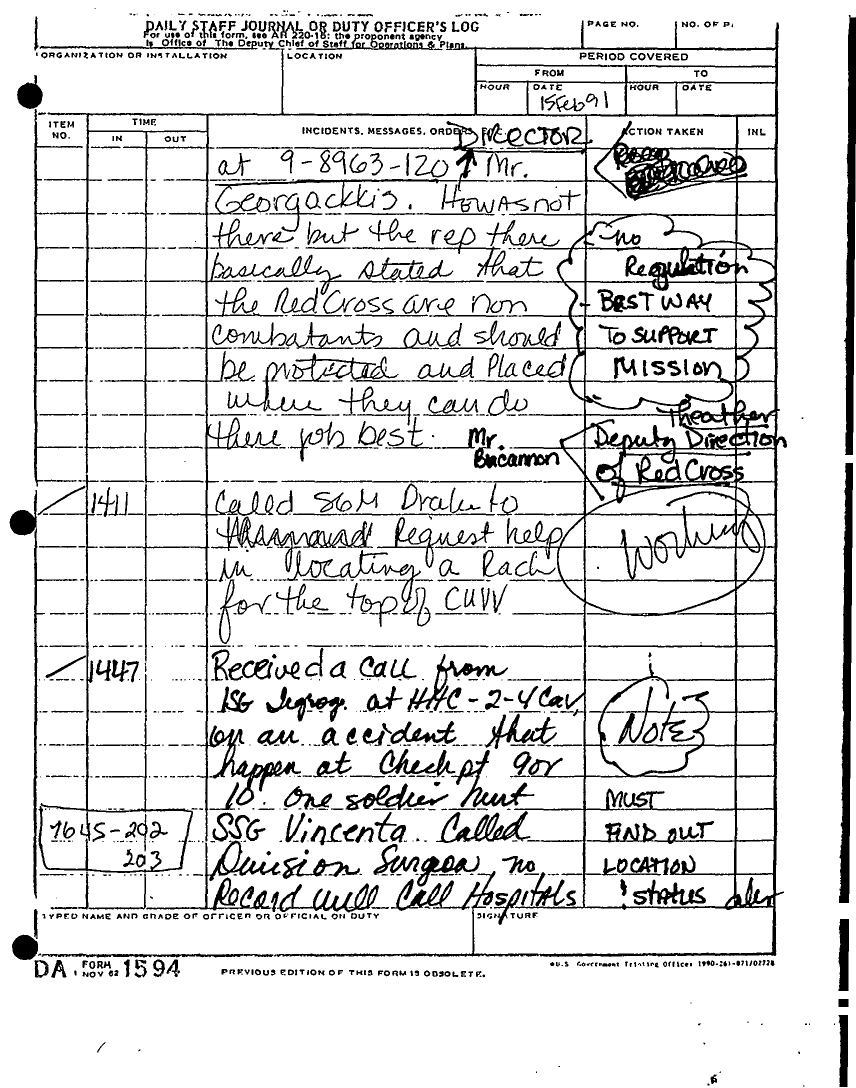 DAILY STAFF JOURNAL OR DUTY OFFICER'S LOG
For use of this form, see AR 220-15; the proponent agency
is Office of The Deputy Chief of Staff for Operations & Plans.
PAGE NO.
NO. OF P
ORGANIZATION OR INSTALLATION
LOCATION
PERIOD COVERED
FROM
TO
HOUR
DATE
HOUR
DATE
15Feb91
ITEM NO.
TIME
IN
OUT
INCIDENTS, MESSAGES, ORDERS
DIRECTOR
ACTION TAKEN
INL
at 9-8963-120 Mr.
Georgackkis. He was not
there but the rep there
basically stated that
the Red Cross are non
combatants and should
be protected and Placed
where they can do
there job best.
Mr.
Bucannon
- no
Regulation
- BEST WAY
TO SUPPORT
MISSION
Theather
Deputy Direction
of Red Cross
1411
Called SGM Drake to
Request help
in locating a Rach
for the top of CUVV
Working
1447
Received a call from
1SG at HHC-2-4 Cav,
on an accident that
happen at Check pt 9 or
10. One soldier hurt
SSG Vincenta Called
Division Surgeon no
Record will Call Hospitals
Note
MUST
FIND OUT
LOCATION
! STATUS
7645-202
203
TYPED NAME AND GRADE OF OFFICER OR OFFICIAL ON DUTY
SIGNATURE
DA FORM 1 NOV 62 1594
PREVIOUS EDITION OF THIS FORM IS OBSOLETE.
U.S. Government Printing Office: 1990-261-871/02728